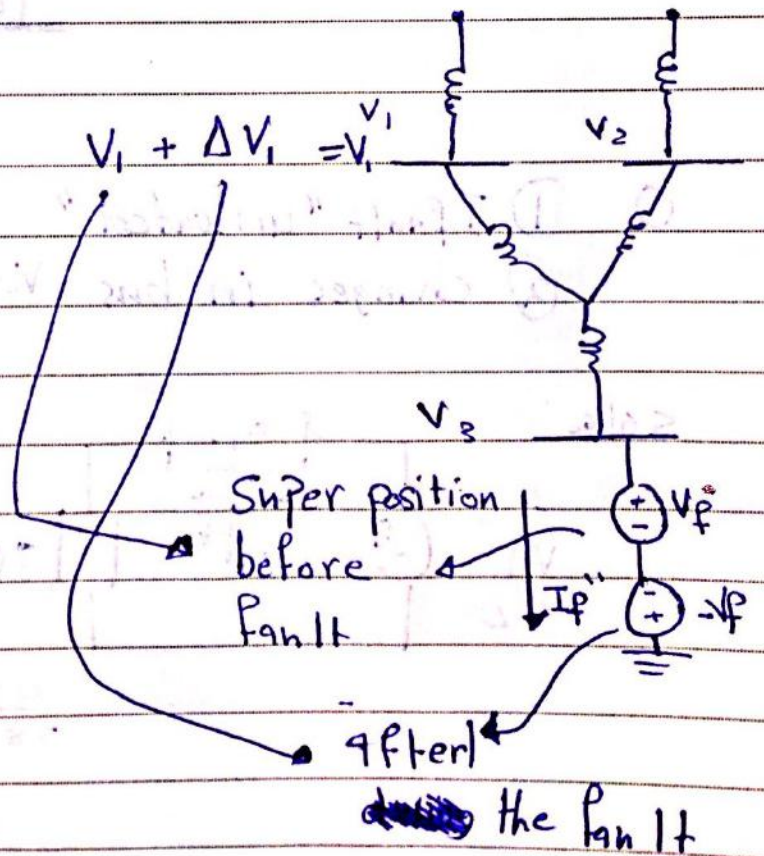 V₁ + ΔV₁ = V₁
V₁
V₂
V₃
Super position
before
fault
Vf
If"
-Vf
after
the fault